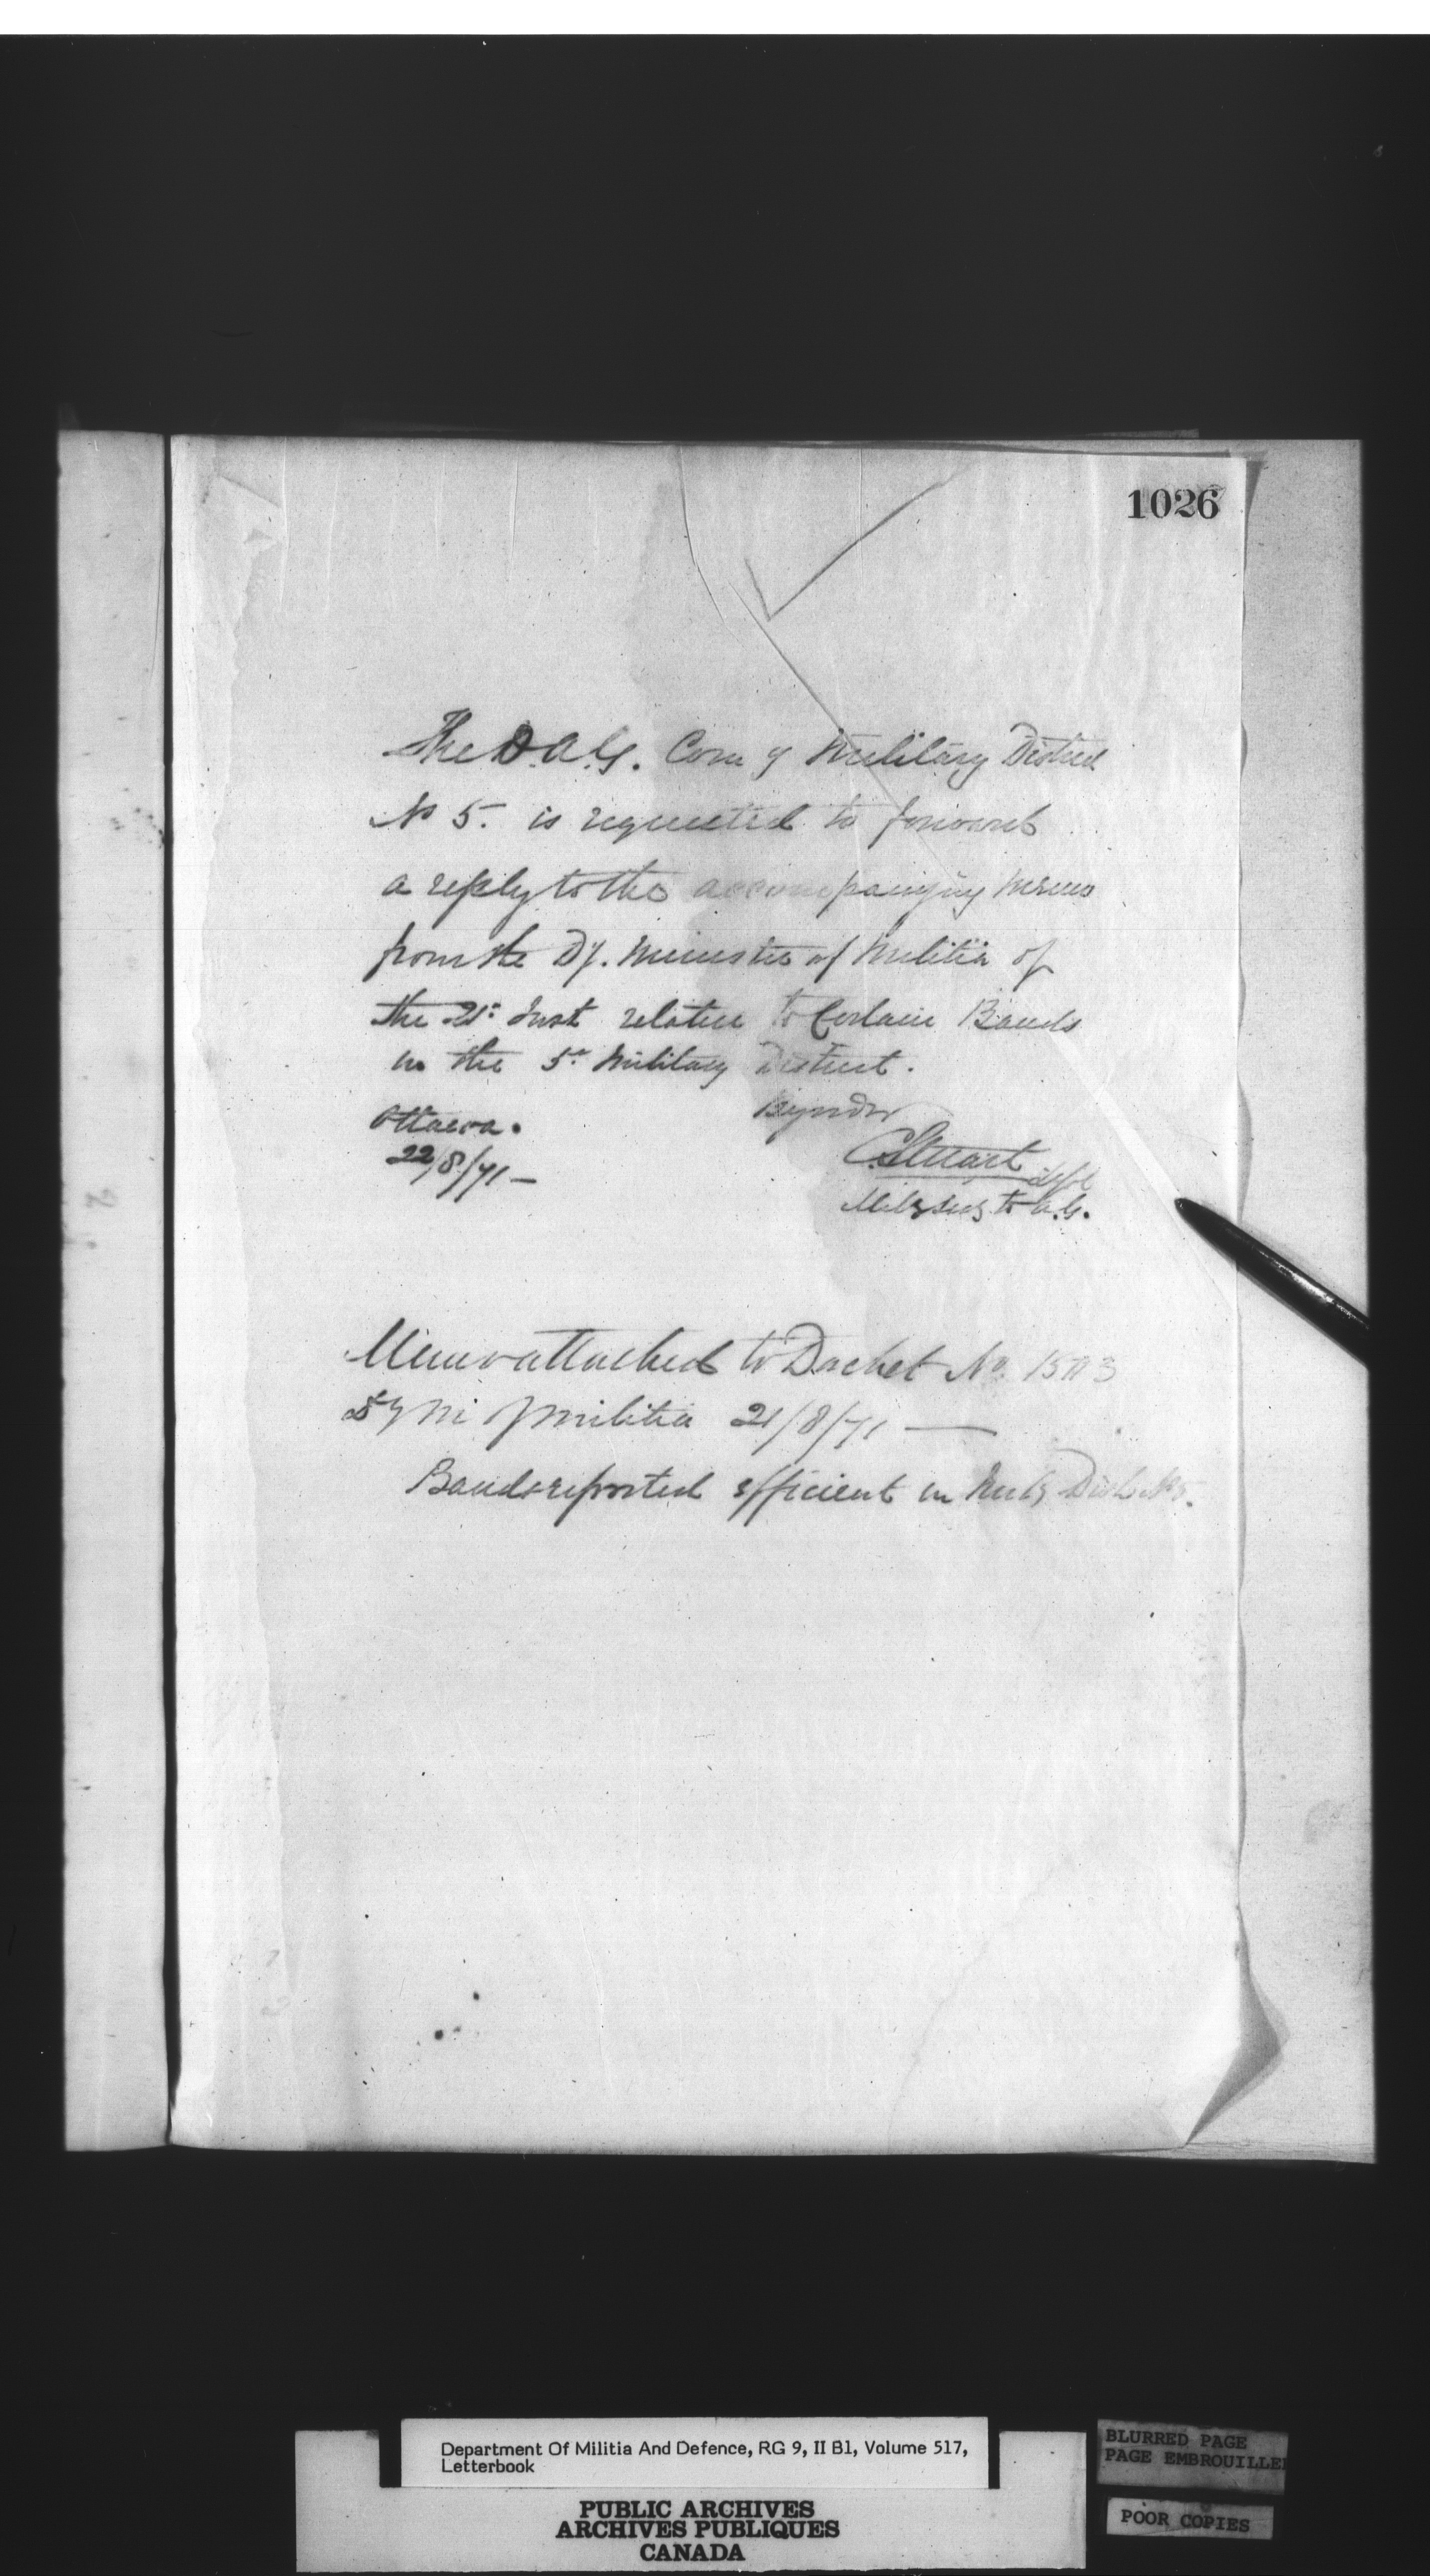 1026
The D.A.G. Comg Military District
No 5. is requested to forward
a reply to the accompanying memo
from the Dy. Minister of Militia of
the 21st Inst relative to Certain Bands
in the 5th Military District.
By order
Ottawa.
22/8/71 -
C Stuart
Mily Secy to A.G.
Memo attached to Docket No.
Dy Mi of Militia 21/8/71 —
Bands reported efficient in Mily Dist No 5.
Department Of Militia And Defence, RG 9, II B1, Volume 517,
Letterbook
PUBLIC ARCHIVES
ARCHIVES PUBLIQUES
CANADA
BLURRED PAGE
PAGE EMBROUILLE
POOR COPIES